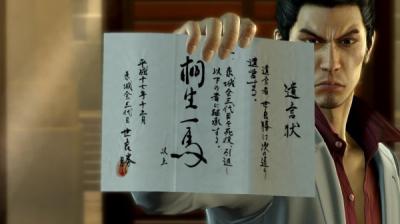 遺言状
遺言者 世良勝は次の通り
遺言する。
一、東城会三代目を死後、引退し
以下の者に継承する。
桐生一馬
以上
平成十七年十二月
東城会三代目
世良 勝